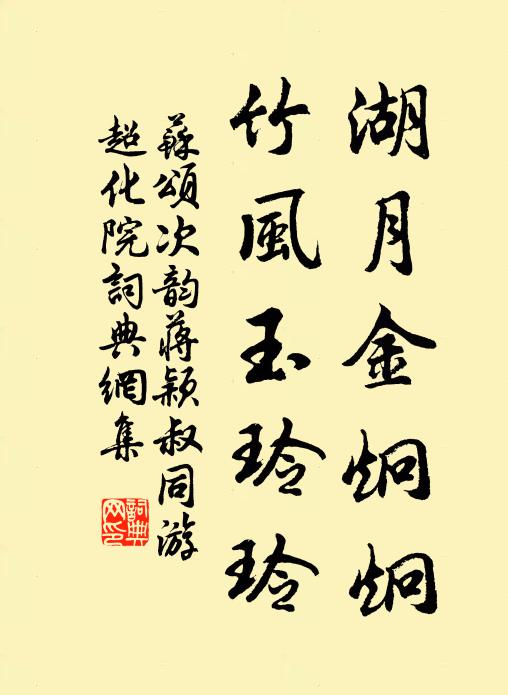 湖月金炯炯
竹風玉玲玲
蘇頌次韵蔣穎叔同游
超化院詞典網集
詞典
网印